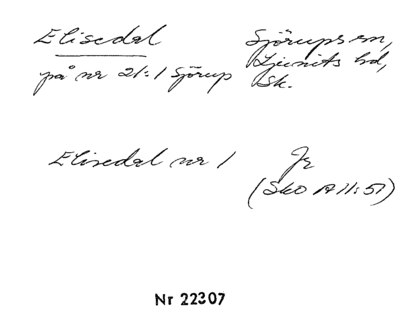 Elisedal Sjörups sn,
på nr 21:1 Sjörup Ljunits hd,
Sk.
Elisedal nr 1 Jr
(Sko A 11:51)
Nr 22307